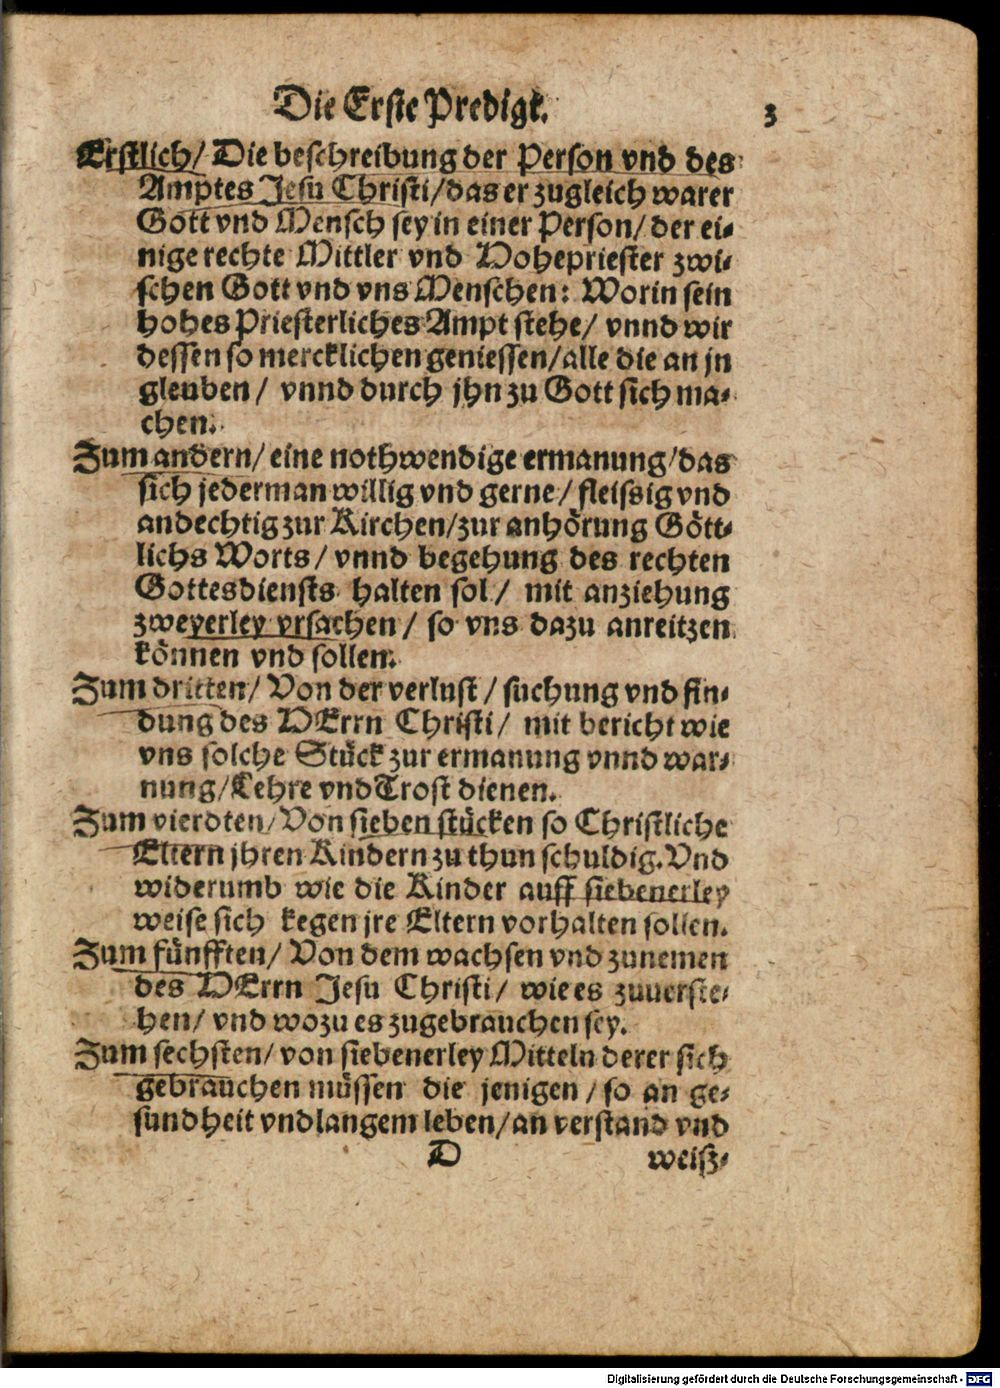 Die Erste Predigt. 3
Erstlich/ Die beschreibung der Person vnd des
Amptes Jesu Christi/ das er zugleich warer
Gott vnd Mensch sey in einer Person/ der ei-
nige rechte Mittler vnd Hohepriester zwi-
schen Gott vnd vns Menschen: Worin sein
hohes Priesterliches Ampt stehe/ vnnd wir
dessen so mercklichen geniessen/ alle die an jn
gleuben/ vnnd durch jhn zu Gott sich ma-
chen.
Zum andern/ eine nothwendige ermanung/ das
sich jederman willig vnd gerne/ fleissig vnd
andechtig zur Kirchen/ zur anhörung Gött-
lichs Worts/ vnnd begehung des rechten
Gottesdiensts halten sol/ mit anziehung
zweyerley vrsachen/ so vns dazu anreitzen
können vnd sollen.
Zum dritten/ Von der verlust/ suchung vnd fin-
dung des HErrn Christi/ mit bericht wie
vns solche Stück zur ermanung vnnd war-
nung/ Lehre vnd Trost dienen.
Zum vierdten/ Von sieben stücken so Christliche
Eltern jhren Kindern zu thun schuldig. Vnd
widerumb wie die Kinder auff siebenerley
weise sich kegen jre Eltern vorhalten sollen.
Zum fünfften/ Von dem wachsen vnd zunemen
des HErrn Jesu Christi/ wie es zuuerste-
hen/ vnd wozu es zugebrauchen sey.
Zum sechsten/ von siebenerley Mitteln derer sich
gebrauchen müssen die jenigen/ so an ge-
sundheit vnd langem leben/ an verstand vnd
D weisz-
Digitalisierung gefördert durch die Deutsche Forschungsgemeinschaft - DFG